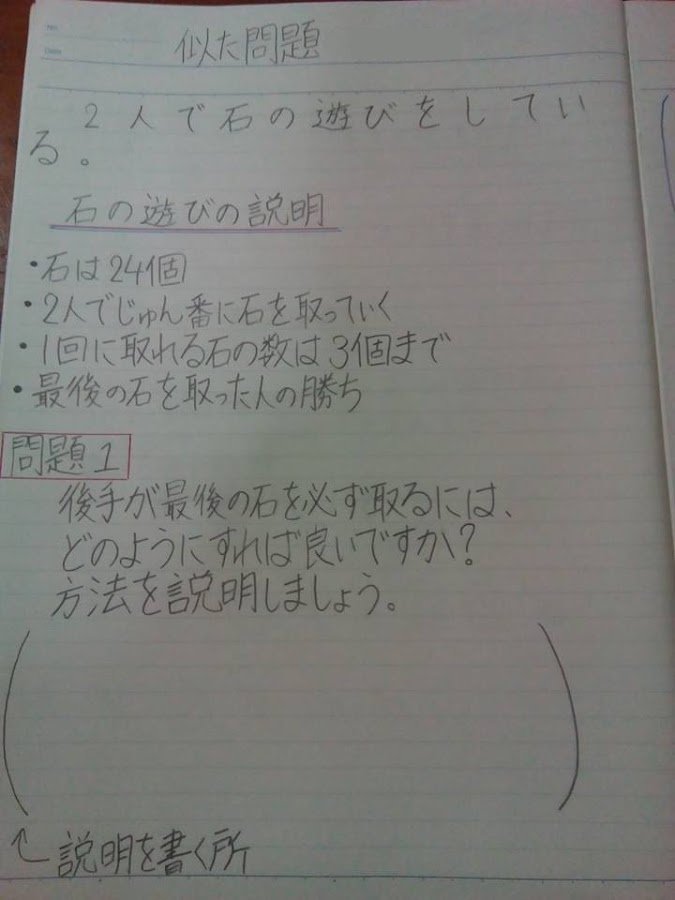 似た問題
2人で石の遊びをしてい
る。
石の遊びの説明
・石は24個
・2人でじゅん番に石を取っていく
・1回に取れる石の数は3個まで
・最後の石を取った人の勝ち
問題1
後手が最後の石を必ず取るには、
どのようにすれば良いですか?
方法を説明しましょう。
( )
↑説明を書く所